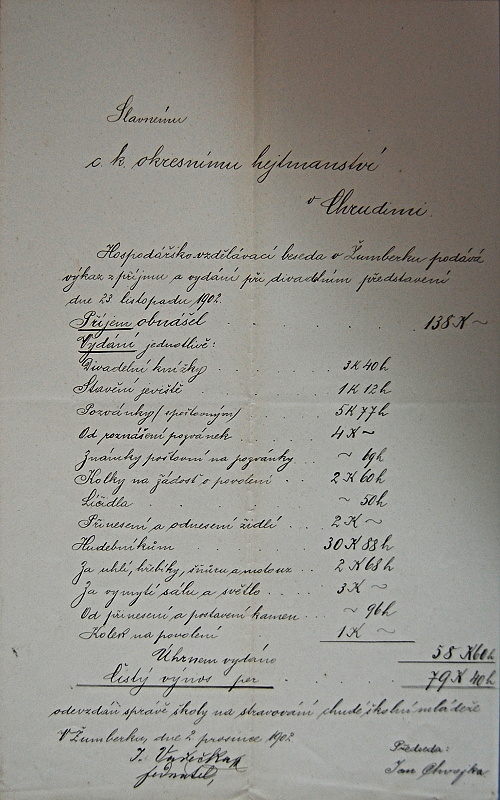 Slavnému
c. k. okresnímu hejtmanství
v Chrudimi.
Hospodářsko vzdělávací beseda v Žumberku podává
výkaz z příjmu a vydání při divadelním představení
dne 23 listopadu 1902.
Příjem obnášel . . . . 138 K ~
Vydání jednotlivě:
Divadelní knížky . . . . 3 K 40 h
Stavění jeviště . . . . 1 K 12 h
Pozvánky /s poštovným/ 5 K 77 h
Od roznášení pozvánek 4 K ~
Známky poštovní na pozvánky . ~ 69 h
Kolky na žádost o povolení . 2 K 60 h
Líčidla . . . . ~ 50 h
Přinesení a odnesení židlí . . . 2 K ~
Hudebníkům . . . . 30 K 88 h
Za uhlí, hřebíky, šňůru a motouz . . 2 K 68 h
Za vymytí sálu a světlo . . . 3 K ~
Od přinesení a postavení kamen . . . ~ 96 h
Kolek na povolení 1 K ~
Úhrnem vydáno 58 K 60 h
Čistý výnos per . . . 79 K 40 h
odevzdán správě školy na stravování chudé školní mládeže
V Žumberku, dne 2 prosince 1902.
Předseda:
jednatel,
Jan Chvojka